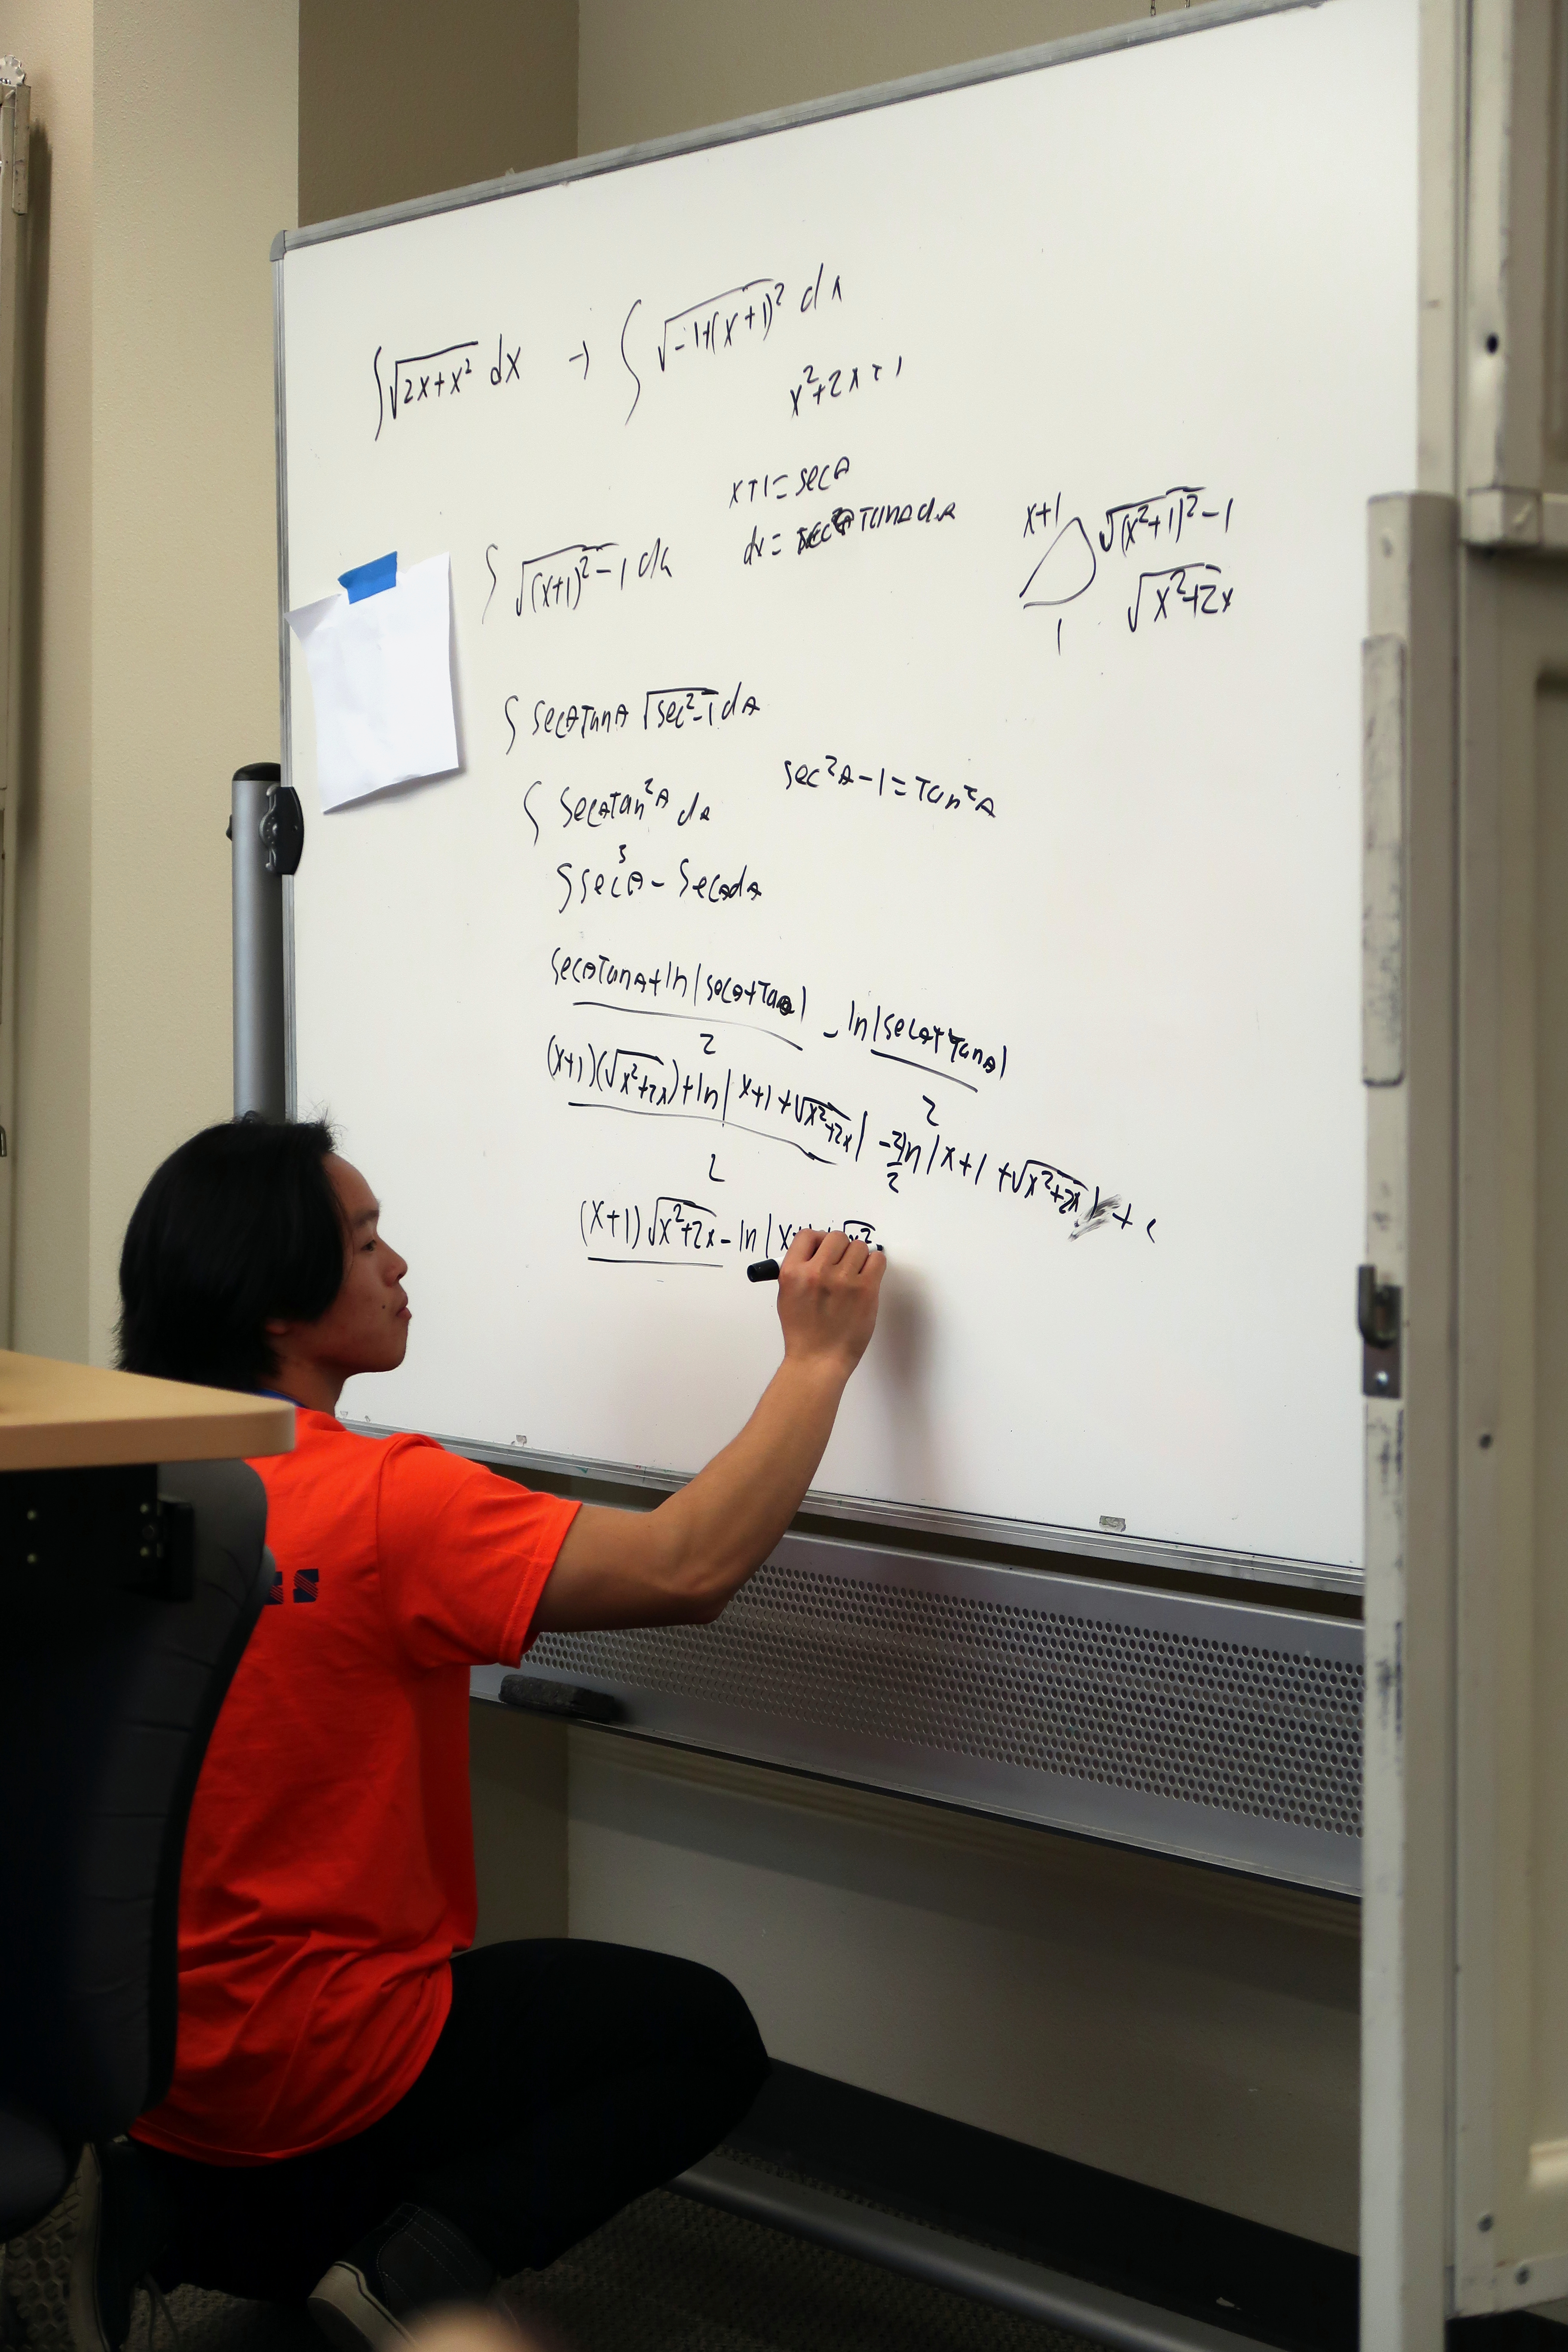 ∫√(2x+x²) dx → ∫√(-1+(x+1)²) dx
x²+2x+1
x+1=secθ
dx= secθ tanθ dθ
∫√((x+1)²-1) dx
x+1
√((x²+1)²-1)
√(x²+2x)
1
∫ secθtanθ √(sec²-1) dθ
∫ secθtan²θ dθ
sec²θ-1=tan²θ
∫sec³θ - secθdθ
(secθtanθ+ln|secθ+tanθ|)/2 - ln|secθ+tanθ|/2
((x+1)(√(x²+2x))+ln|x+1+√(x²+2x)|)/2 - 2/2 ln|x+1+√(x²+2x)| + c
(x+1)√(x²+2x) - ln|x+1+√x²